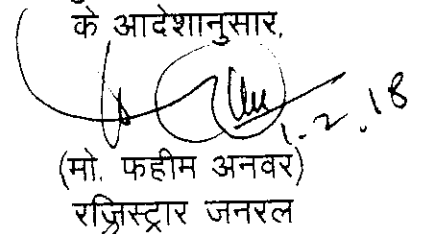 के आदेशानुसार,
1.2.18
(मो. फहीम अनवर)
रजिस्ट्रार जनरल